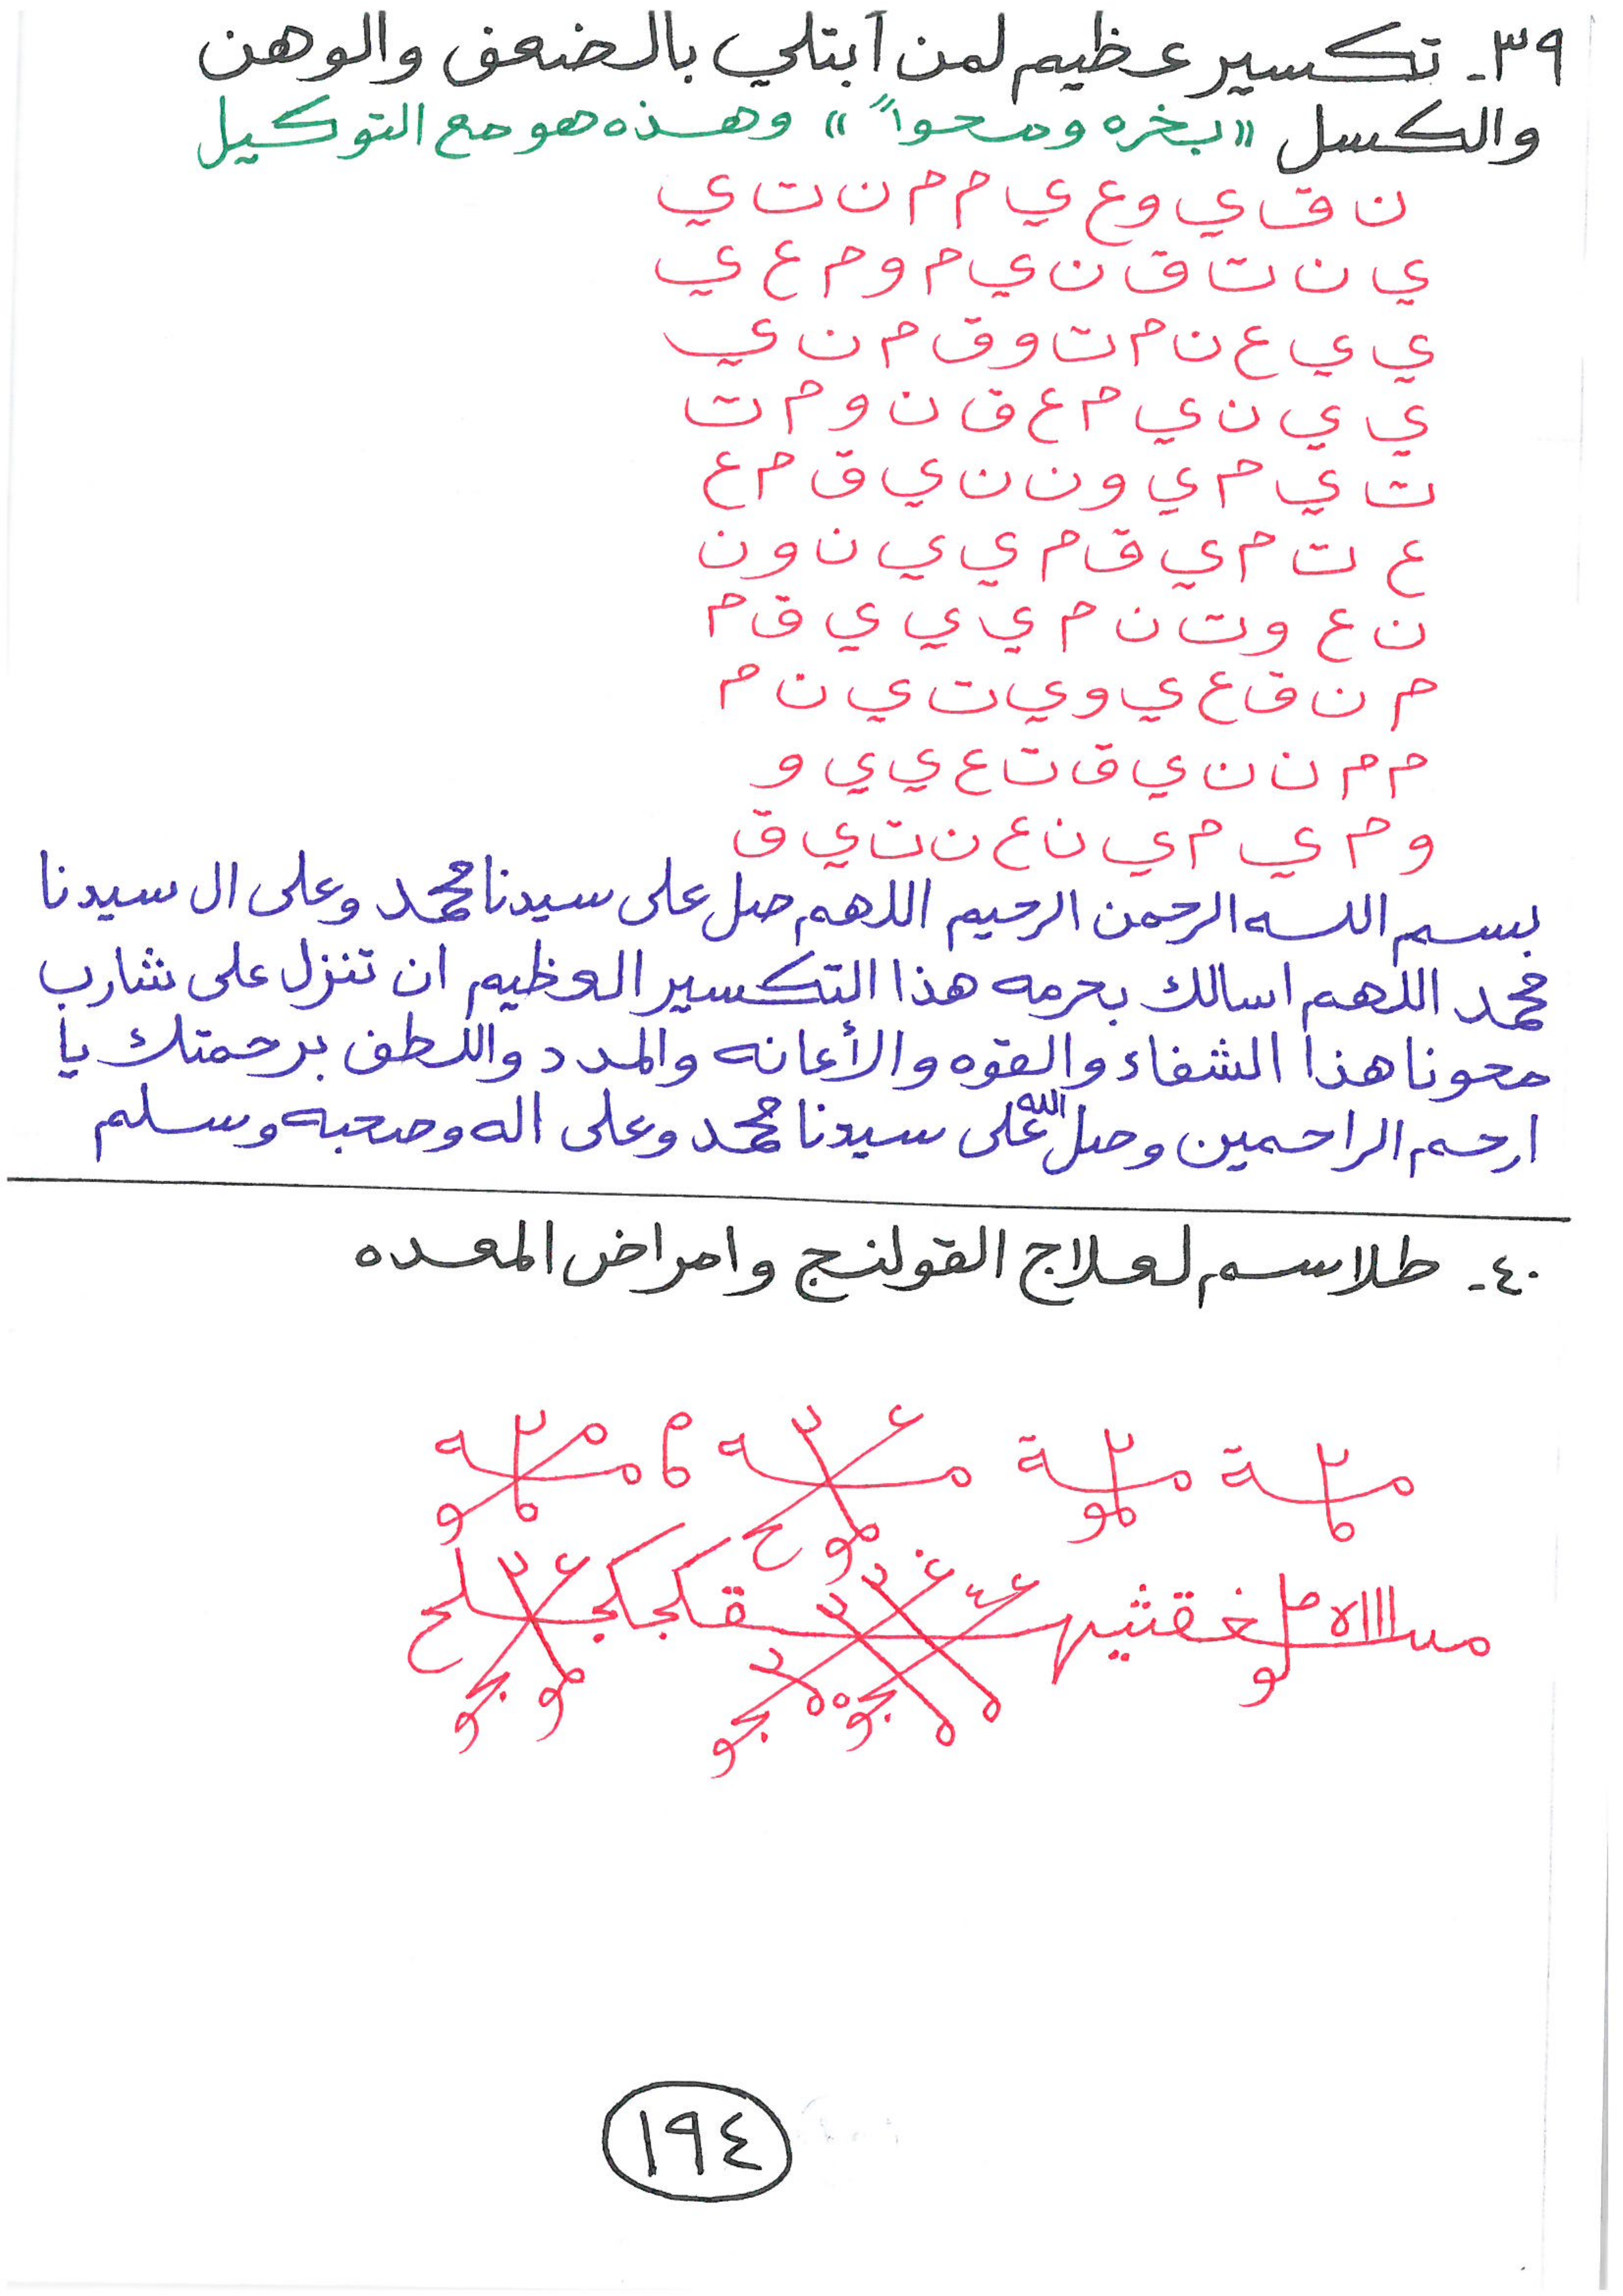 ٣٩- تكسير عظيم لمن ابتلي بالضعف والوهن
والكسل "بخره ومحواً" وهذه هو مع التوكيل
ن ق ي و ع ي م م ن ت ي
ي ن ت ق ن ي م و م ع ي
ي ي ع ن م ت و ق م ن ي
ي ي ن ي م ع ق ن و م ت
ت ي م ي و ن ن ي ق م ع
ع ت م ي ق م ي ي ن و ن
ن ع و ت ن م ي ي ي ق م
م ن ق ع ي و ي ت ي ن م
م م ن ن ي ق ت ع ي ي و
و م ي م ي ن ع ن ت ي ق
بسم الله الرحمن الرحيم اللهم صل على سيدنا محمد وعلى ال سيدنا
محمد اللهم اسالك بحرمه هذا التكسير العظيم ان تنزل على شارب
محونا هذا الشفاء والقوه والأعانه والمدد واللطف برحمتك يا
ارحم الراحمين وصل الله على سيدنا محمد وعلى اله وصحبه وسلم
٤٠- طلاسم لعلاج القولنج وامراض المعده
١٩٤